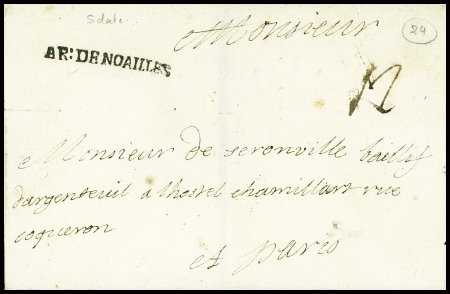 S date
24
Monsieur
AR: DE NOAILLES
Monsieur de seronville baillif
dargenteuil a lhostel chamillart rue
coqueron
A paris